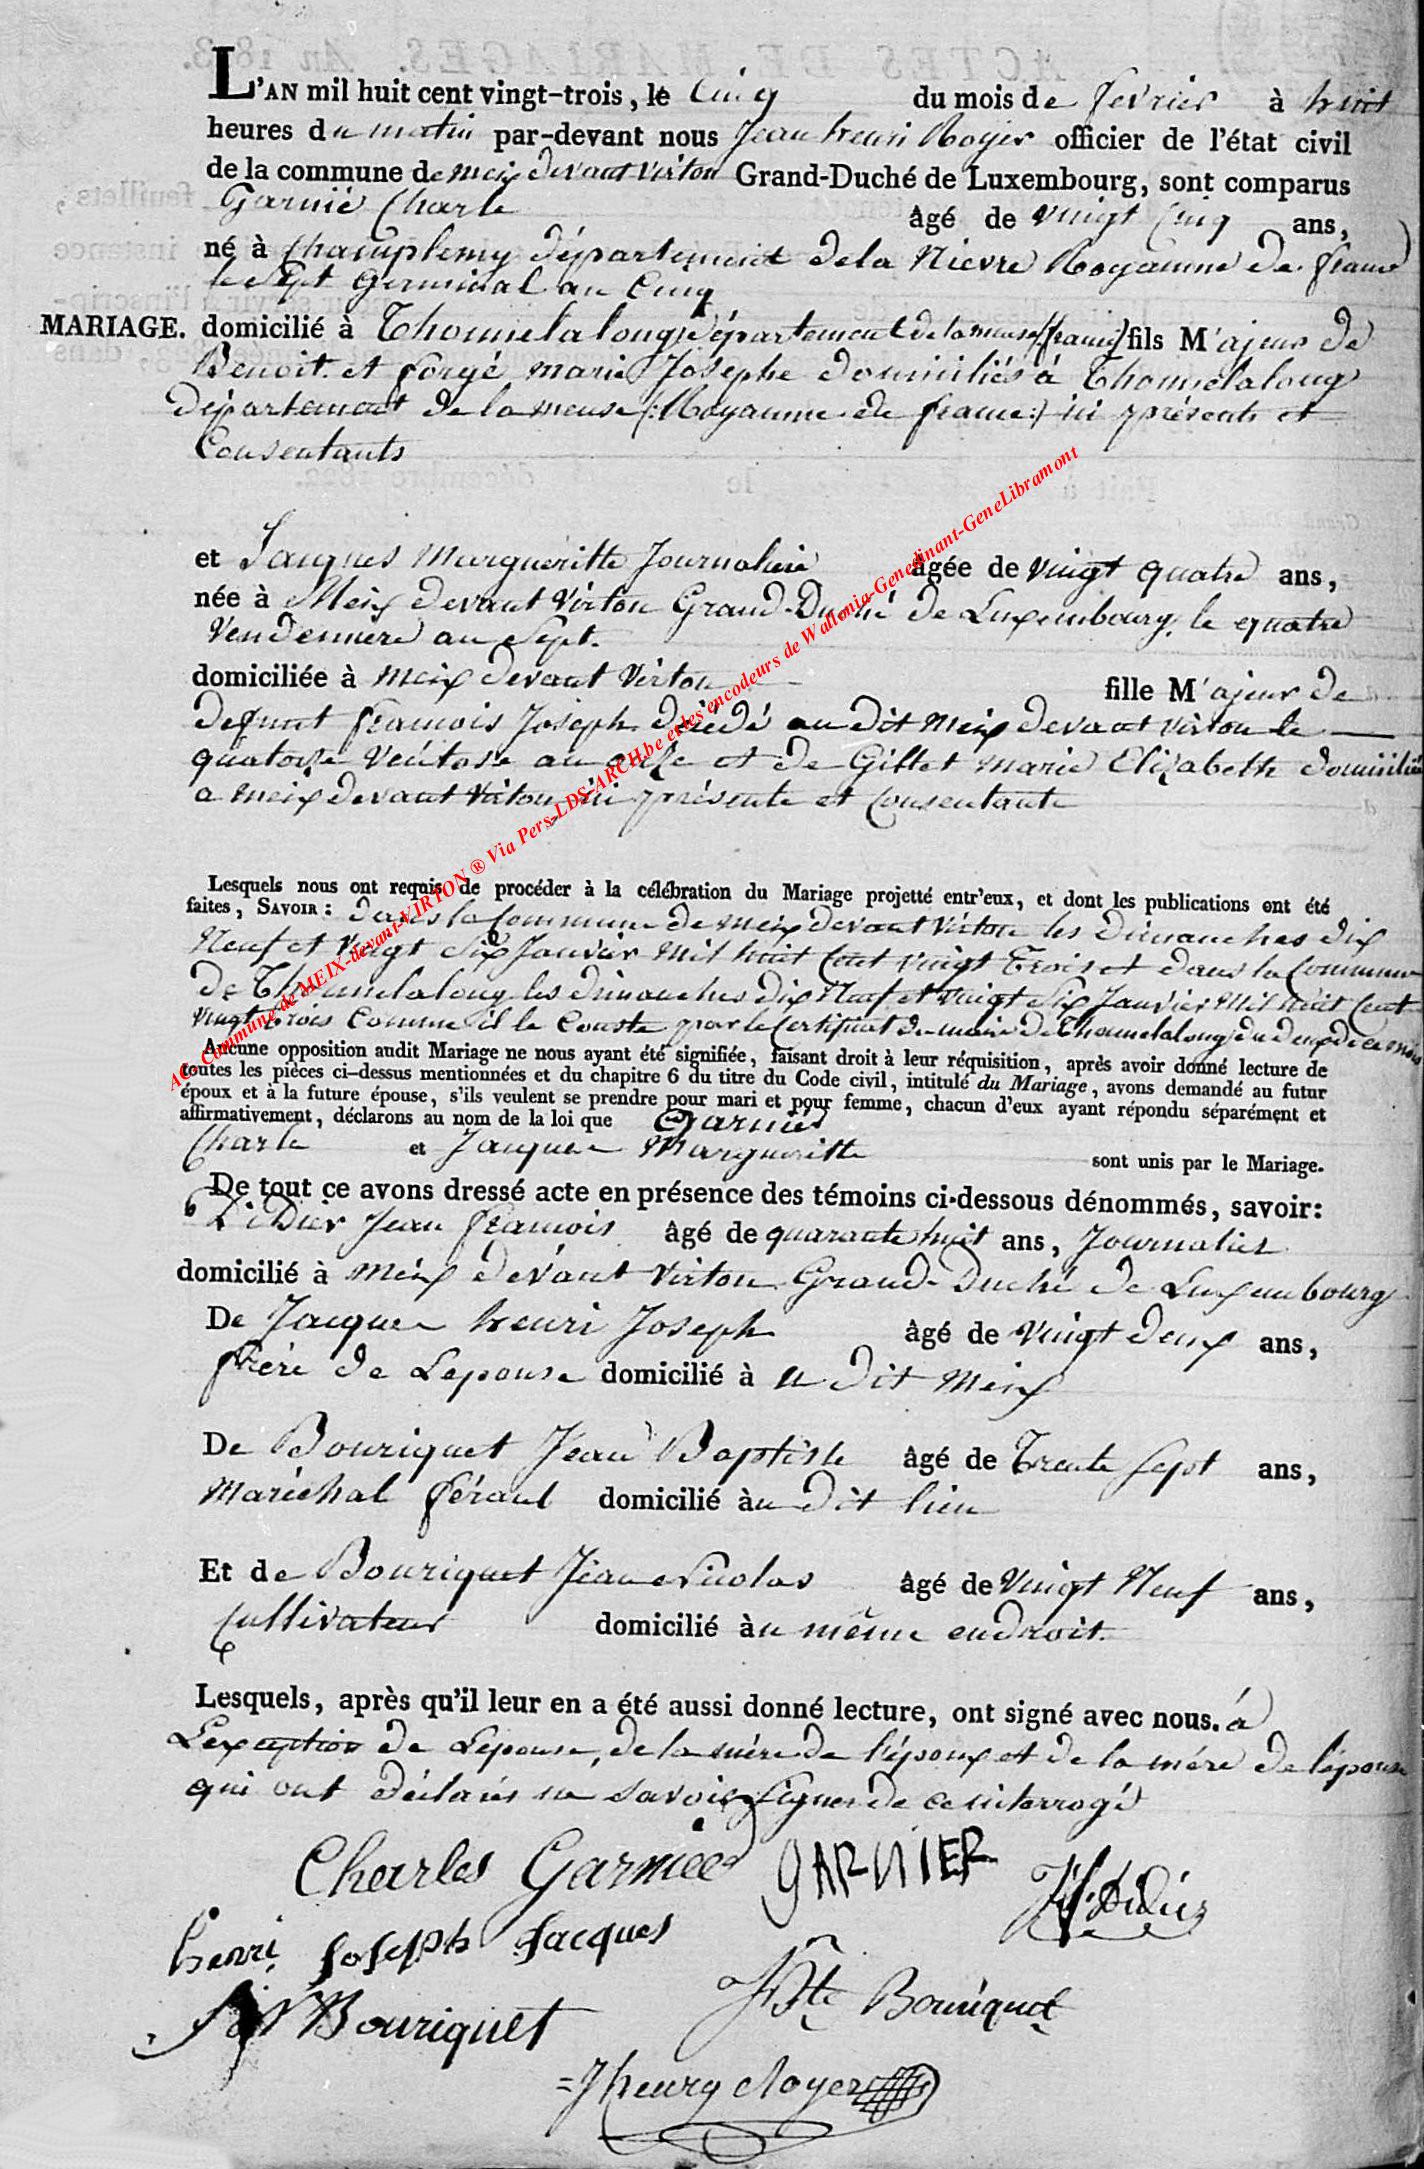 L'AN mil huit cent vingt-trois, le Cinq du mois de fevrier à huit
heures du matin par-devant nous Jean henri Royer officier de l'état civil
de la commune de meix devant virton Grand-Duché de Luxembourg, sont comparus
Garnié Charle âgé de vingt Cinq ans,
né à Champlemy département de la Nievre Royaume de france
le Sept Germinal an Cinq
MARIAGE. domicilié à Thonnelalong département de la meuse (france) fils M'ajeur de
Benoit et forgé marie Josephe domiciliés à Thonnelalong
département de la meuse (: Royaume de france :) ici présents et
Consentants
et Jacques Margueritte Journaliere âgée de vingt quatre ans,
née à Meix devant Virton Grand-Duché de Luxembourg, le quatre
Vendemiere an Sept.
domiciliée à meix devant Virton fille M'ajeur de
defunt francois Joseph décédé au dit Meix devant virton le
quatorze Ventose an onze et de Gillet marie Elizabeth domiciliée
a meix devant Virton ici présente et Consentante
Lesquels nous ont requis de procéder à la célébration du Mariage projetté entr'eux, et dont les publications ont été
faites, SAVOIR : dans la Commune de meix devant Virton les dimanches dix
Neuf et Vingt Six Janvier Mil huit Cent vingt Trois et dans la Commune
de Thonnelalong les dimanches dix Neuf et vingt Six Janvier Mil huit Cent
vingt trois comme il le Conste par le Certificat du maire de Thonnelalong du deux de ce mois
Aucune opposition audit Mariage ne nous ayant été signifiée, faisant droit à leur réquisition, après avoir donné lecture de
toutes les pièces ci-dessus mentionnées et du chapitre 6 du titre du Code civil, intitulé du Mariage, avons demandé au futur
époux et à la future épouse, s'ils veulent se prendre pour mari et pour femme, chacun d'eux ayant répondu séparément et
affirmativement, déclarons au nom de la loi que Garnier
Charle et Jacques Margueritte sont unis par le Mariage.
De tout ce avons dressé acte en présence des témoins ci-dessous dénommés, savoir:
Didier Jean francois âgé de quarante huit ans, Journalier
domicilié à meix dévant virton Grand-Duché de Luxembourg
De Jacques henri Joseph âgé de vingt deux ans,
frére de Lepouse domicilié à u dit Meix
De Bouriquet Jean Baptiste âgé de Trente Sept ans,
Maréchal féraul domicilié àu dit lieu
Et de Bouriquet Jean Nicolas âgé de Vingt Neuf ans,
Cultivateur domicilié àu même endroit.
Lesquels, après qu'il leur en a été aussi donné lecture, ont signé avec nous. á
Lexception de Lépouse, de la mére de l'époux et de la mére de l'épouse
qui ont déclarés ne savoir Signer de ce interrogé
Charles Garnier GARNIER J f. Didier
henri Joseph Jacques
J Bte Bouriquet
J N Bouriquet
= J henry Royer
AC. Commune de MEIX-devant-VIRTON ® Via Pers-LDS-ARCH.be et les encodeurs de Wallonia-Genedinant-GeneLibramont